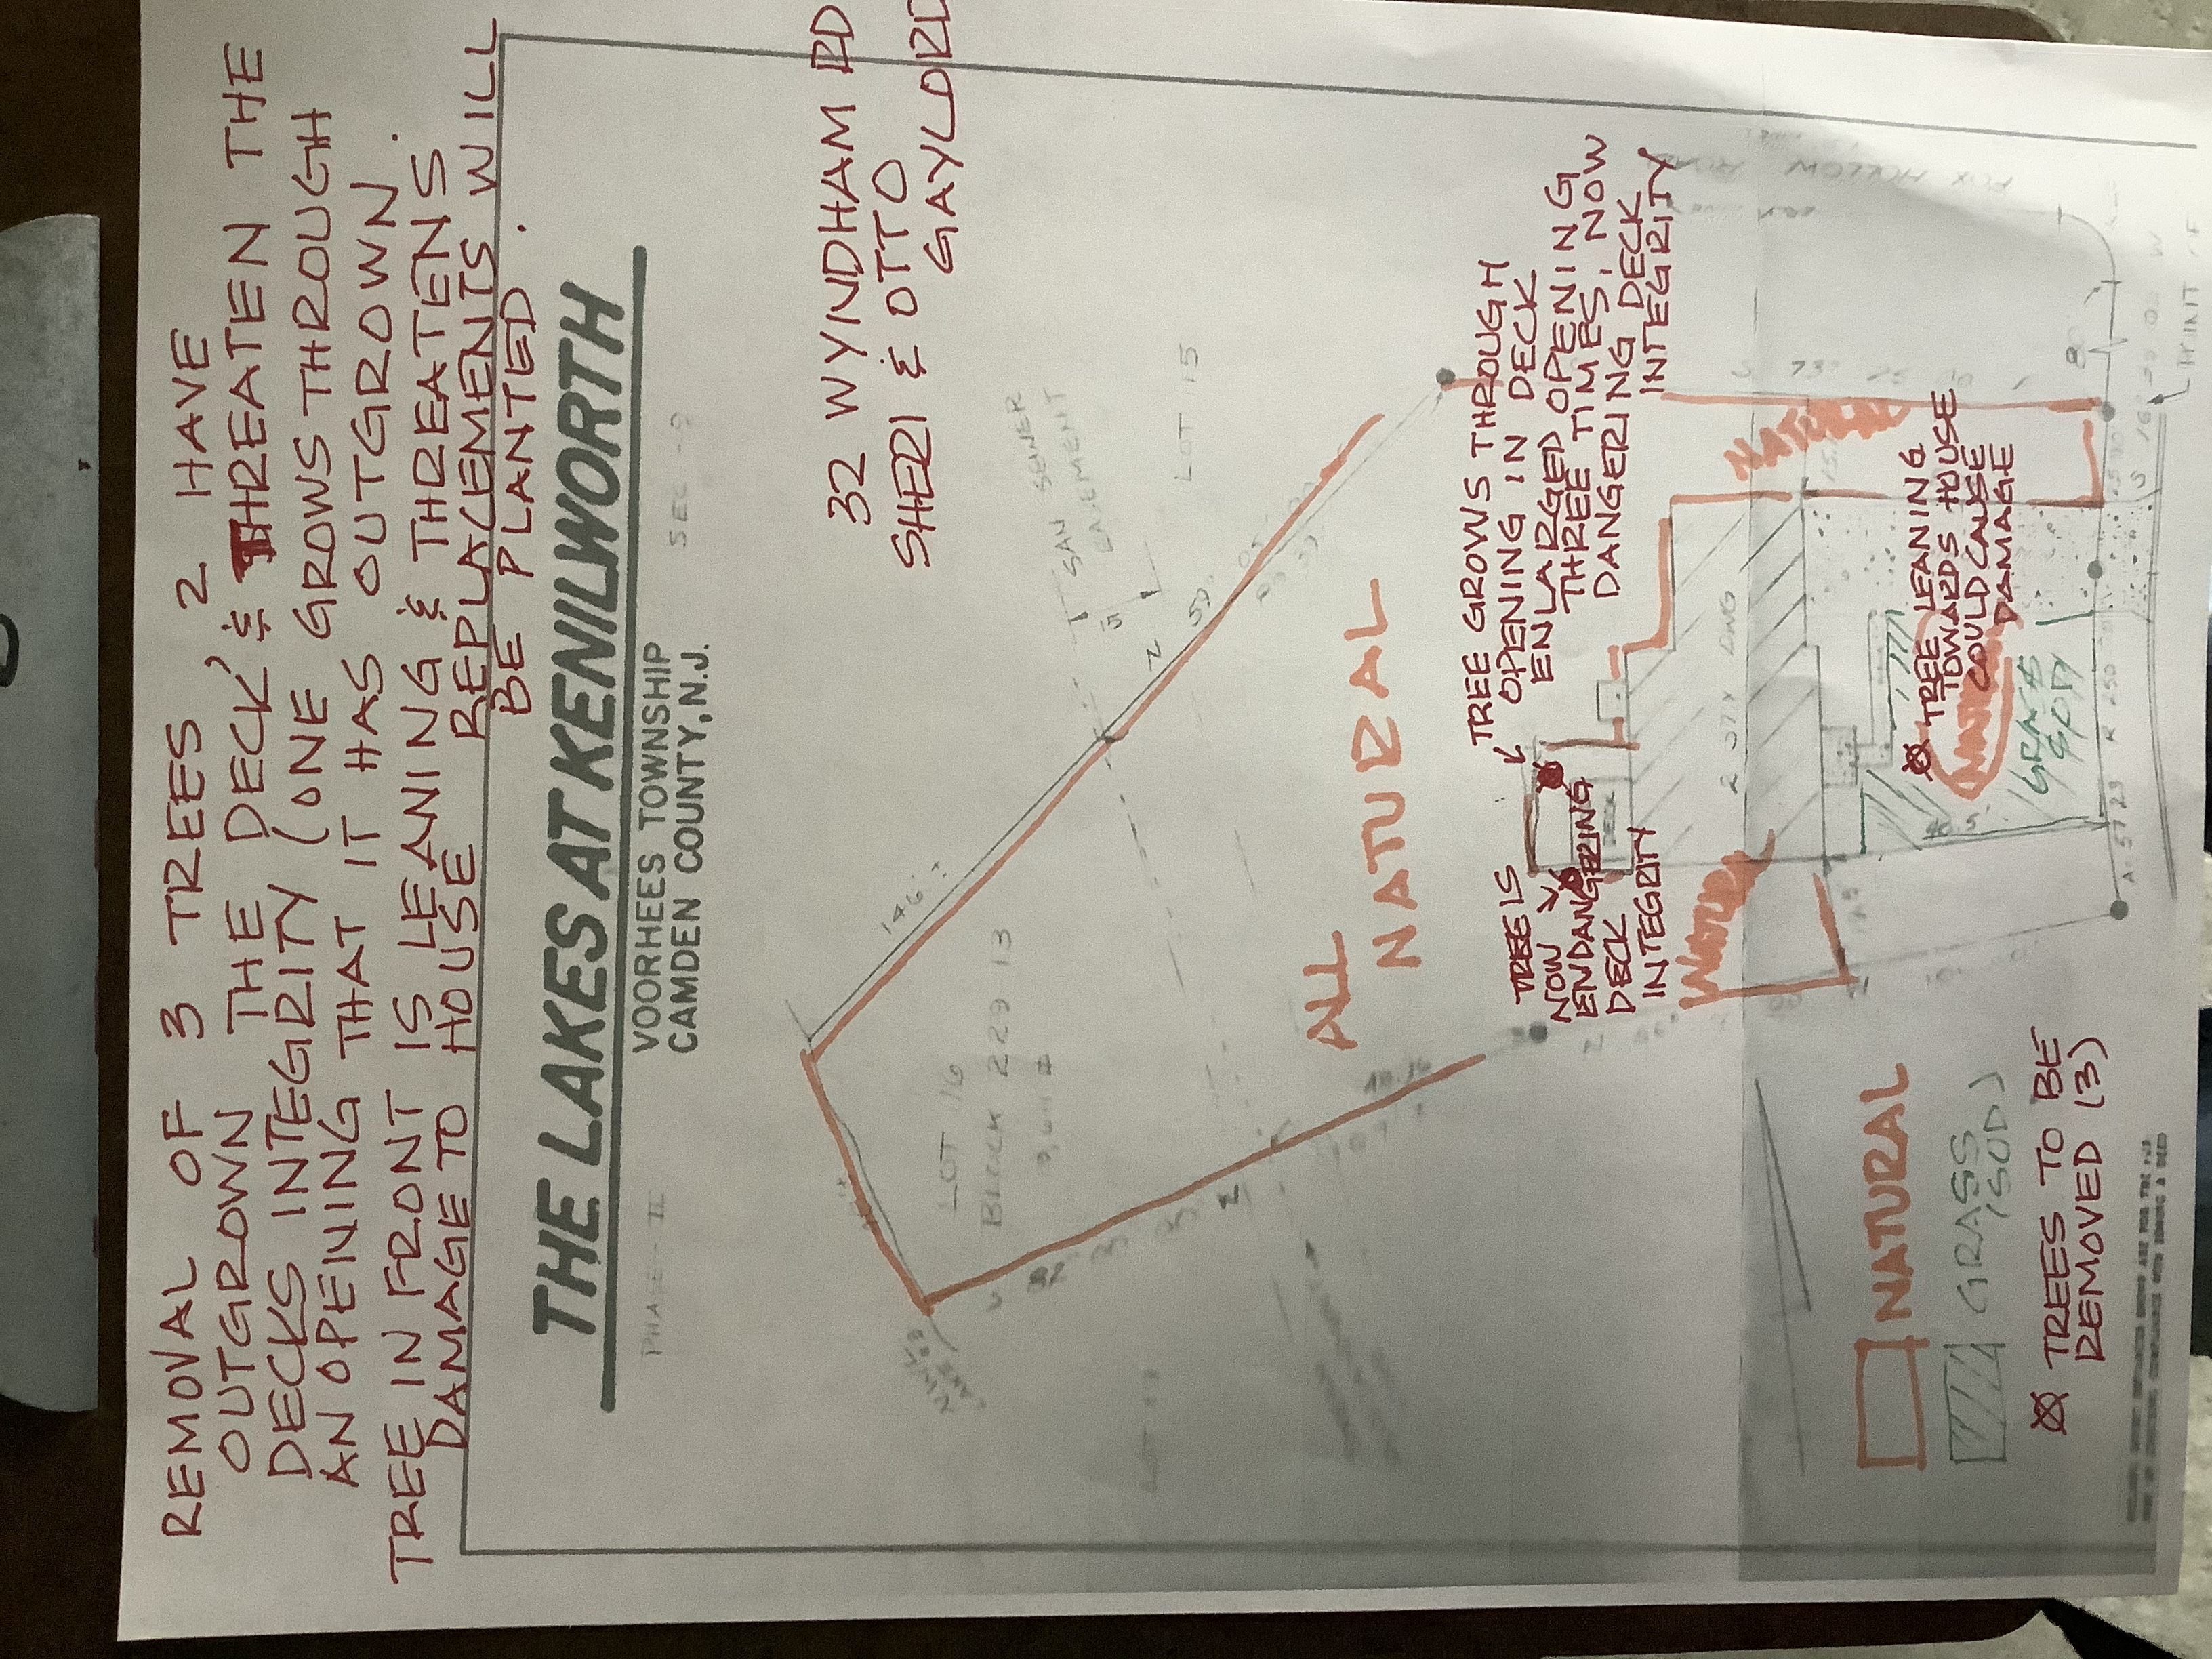 REMOVAL OF 3 TREES 2 HAVE
OUTGROWN THE DECK, & THREATEN THE
DECKS INTEGRITY (ONE GROWS THROUGH
AN OPENING THAT IT HAS OUTGROWN.
TREE IN FRONT IS LEANING & THREATENS
DAMAGE TO HOUSE REPLACEMENTS WILL
BE PLANTED.
THE LAKES AT KENILWORTH
VOORHEES TOWNSHIP
CAMDEN COUNTY, N.J.
PHASE - II
SEC - 9
32 WYNDHAM RD
SHERI & OTTO
GAYLORD
SAN SEWER
EASEMENT
LOT 15
LOT 16
BLOCK 229 13
146
ALL
NATURAL
TREE GROWS THROUGH
OPENING IN DECK
ENLARGED OPENING
THREE TIMES, NOW
DANGERING DECK
INTEGRITY
TREE IS
NOW
ENDANGERING
DECK
INTEGRITY
DECK
NATURAL
NATURAL
2 STY DWG
FOX HOLLOW ROAD
TREE LEANING
TOWARDS HOUSE
COULD CAUSE
DAMAGE
NATURAL
GRASS
SOD
40.5
R 250
POINT OF
NATURAL
GRASS
(SOD)
TREES TO BE
REMOVED (3)